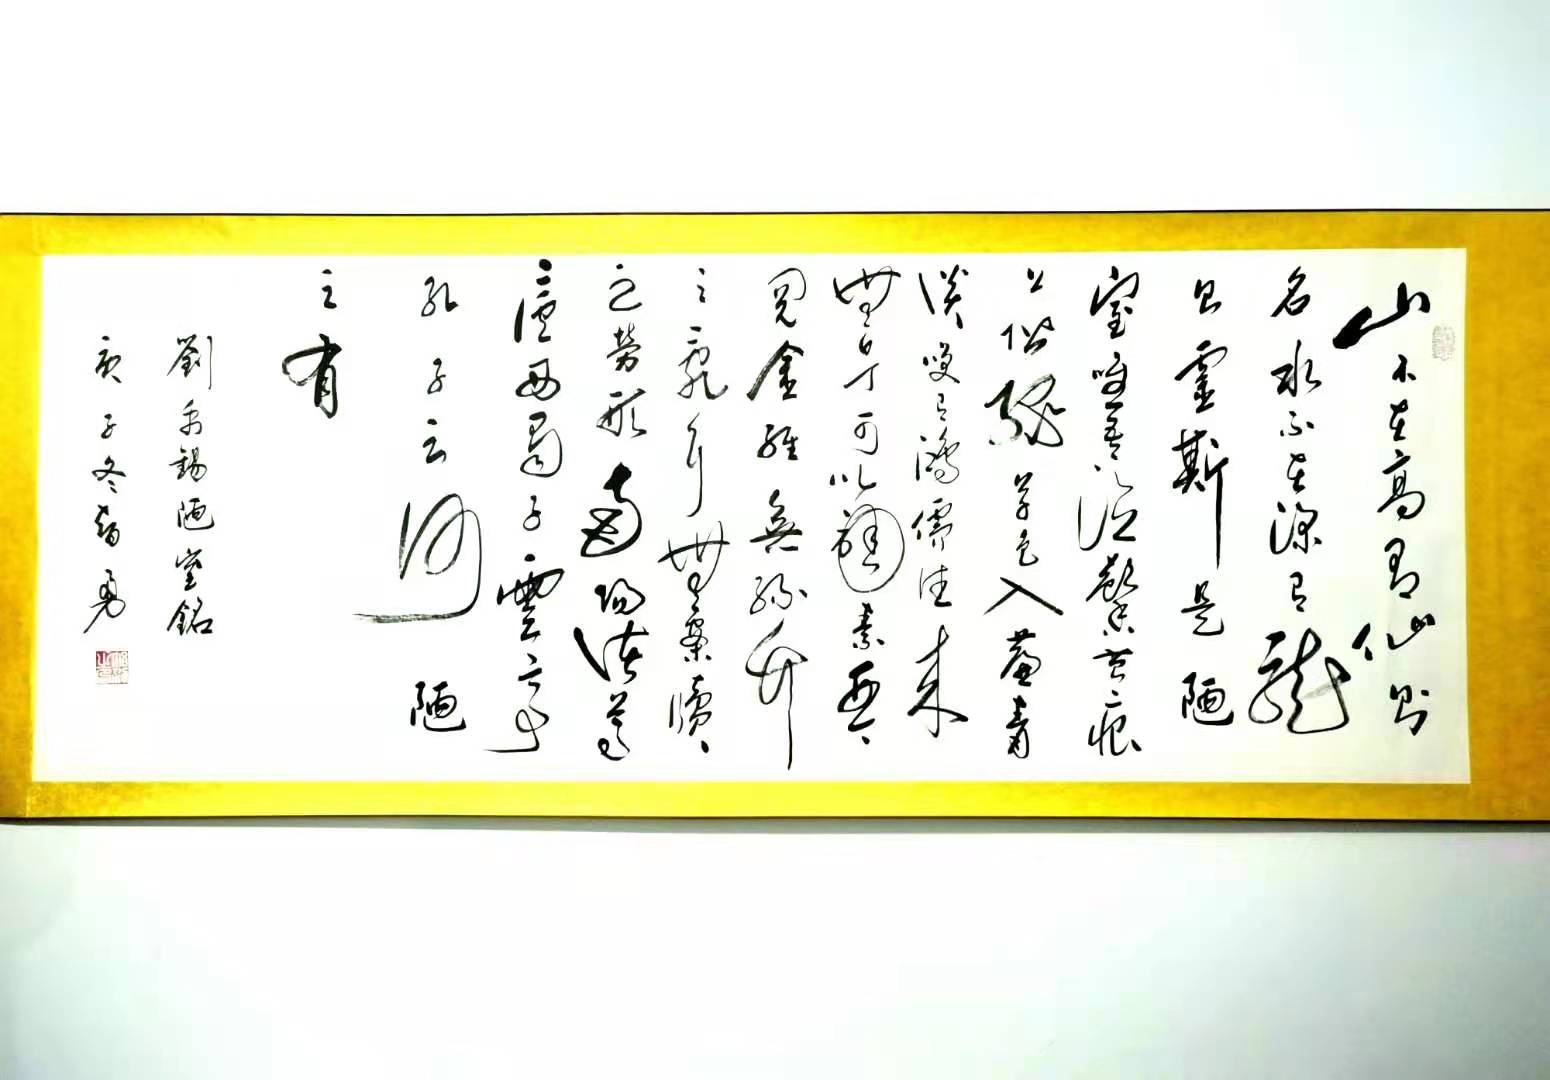 山不在高有仙則
名水不在深有龍
則靈斯是陋
室唯吾德馨苔痕
上階綠草色入簾青
談笑有鴻儒往來
無白丁可以調素琴
閱金經無絲竹
之亂耳無案牘
之勞形南陽諸葛
廬西蜀子雲亭
孔子云何陋
之有
劉禹錫陋室銘
庚子冬勇